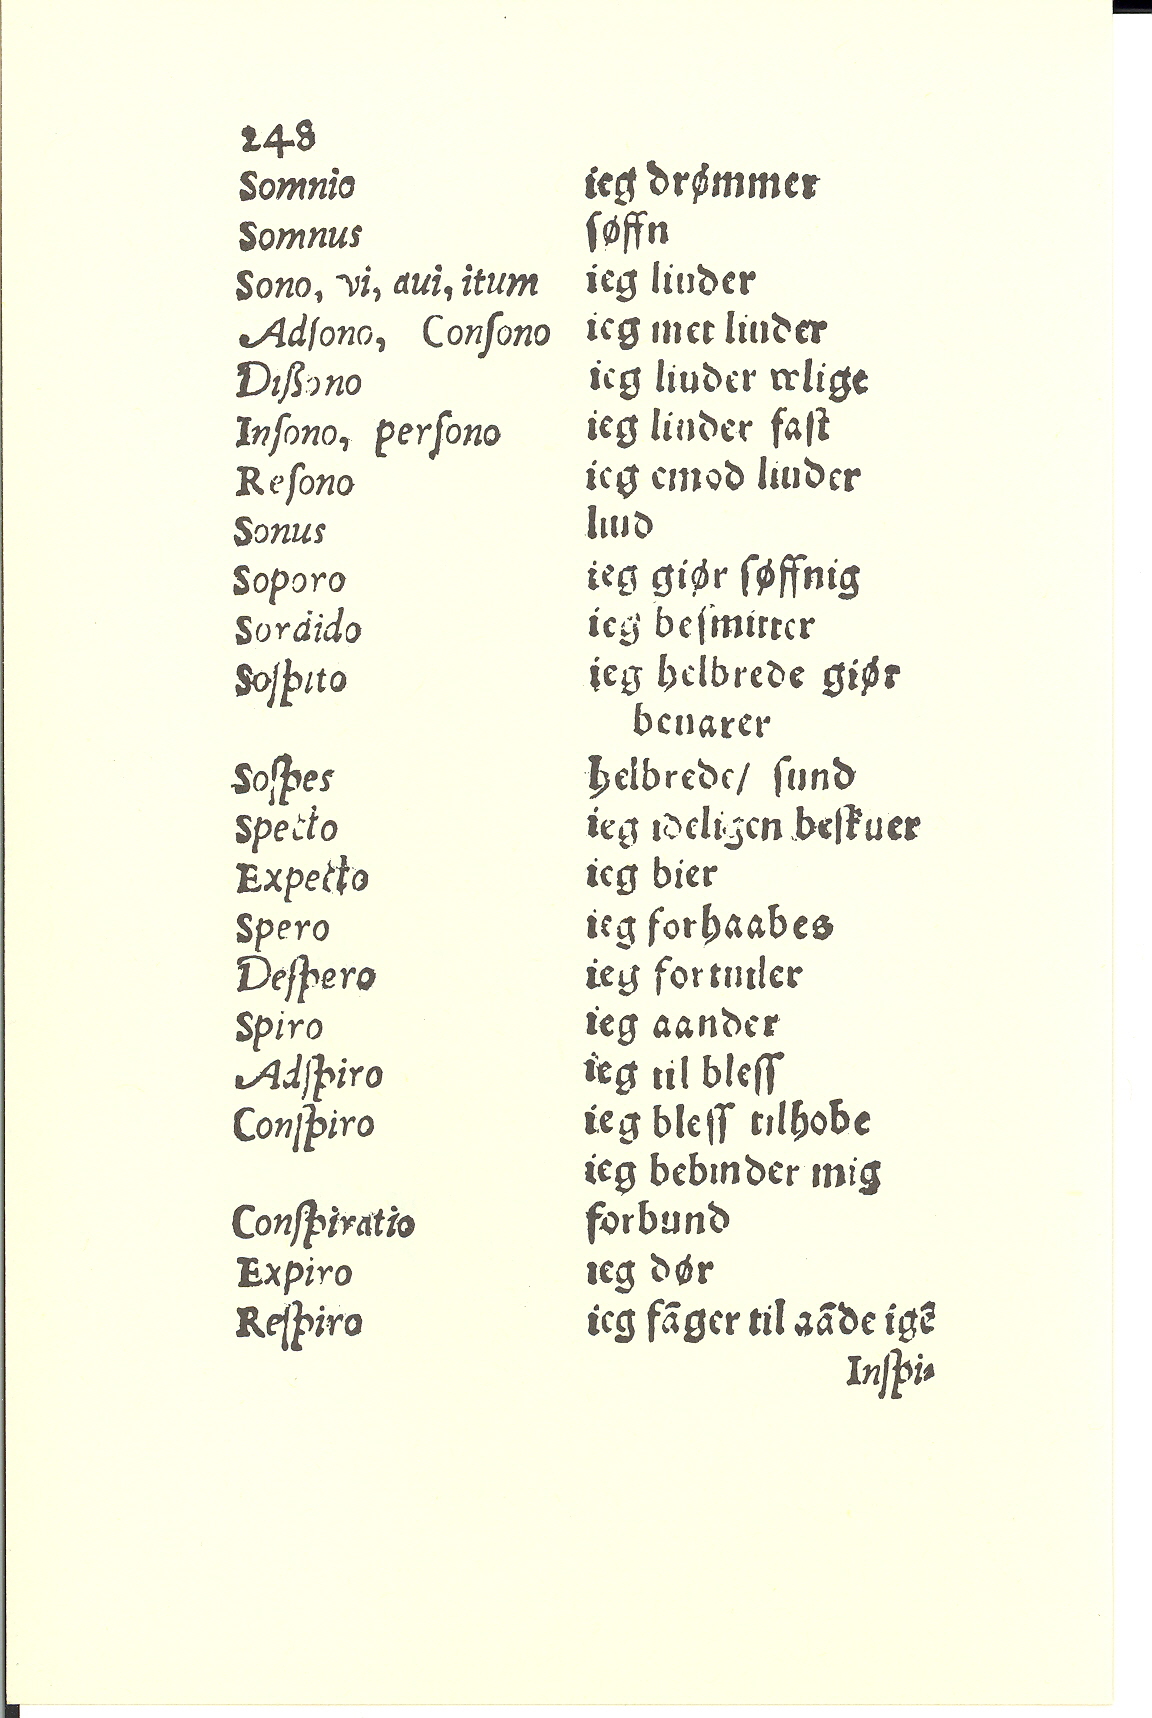 248
Somnio ieg drømmer
Somnus ſøffn
Sono, vi, aui, itum ieg liuder
Adſono, Conſono ieg met liuder
Dißono ieg liuder ærlige
Inſono, perſono ieg liuder faſt
Reſono ieg emod liuder
Sonus liud
Soporo ieg giør ſøffnig
Sordido ieg beſmitter
Soſpito ieg helbrede giør
beuarer
Soſpes helbrede/ ſund
Specto ieg ideligen beſkuer
Expecto ieg bier
Spero ieg forhaabes
Deſpero ieg fortuiler
Spiro ieg aander
Adſpiro ieg til bleſſ
Conſpiro ieg bleſſ tilhobe
ieg bebinder mig
Conſpiratio forbund
Expiro ieg dør
Reſpiro ieg fāger til aāde igē
Inſpi-